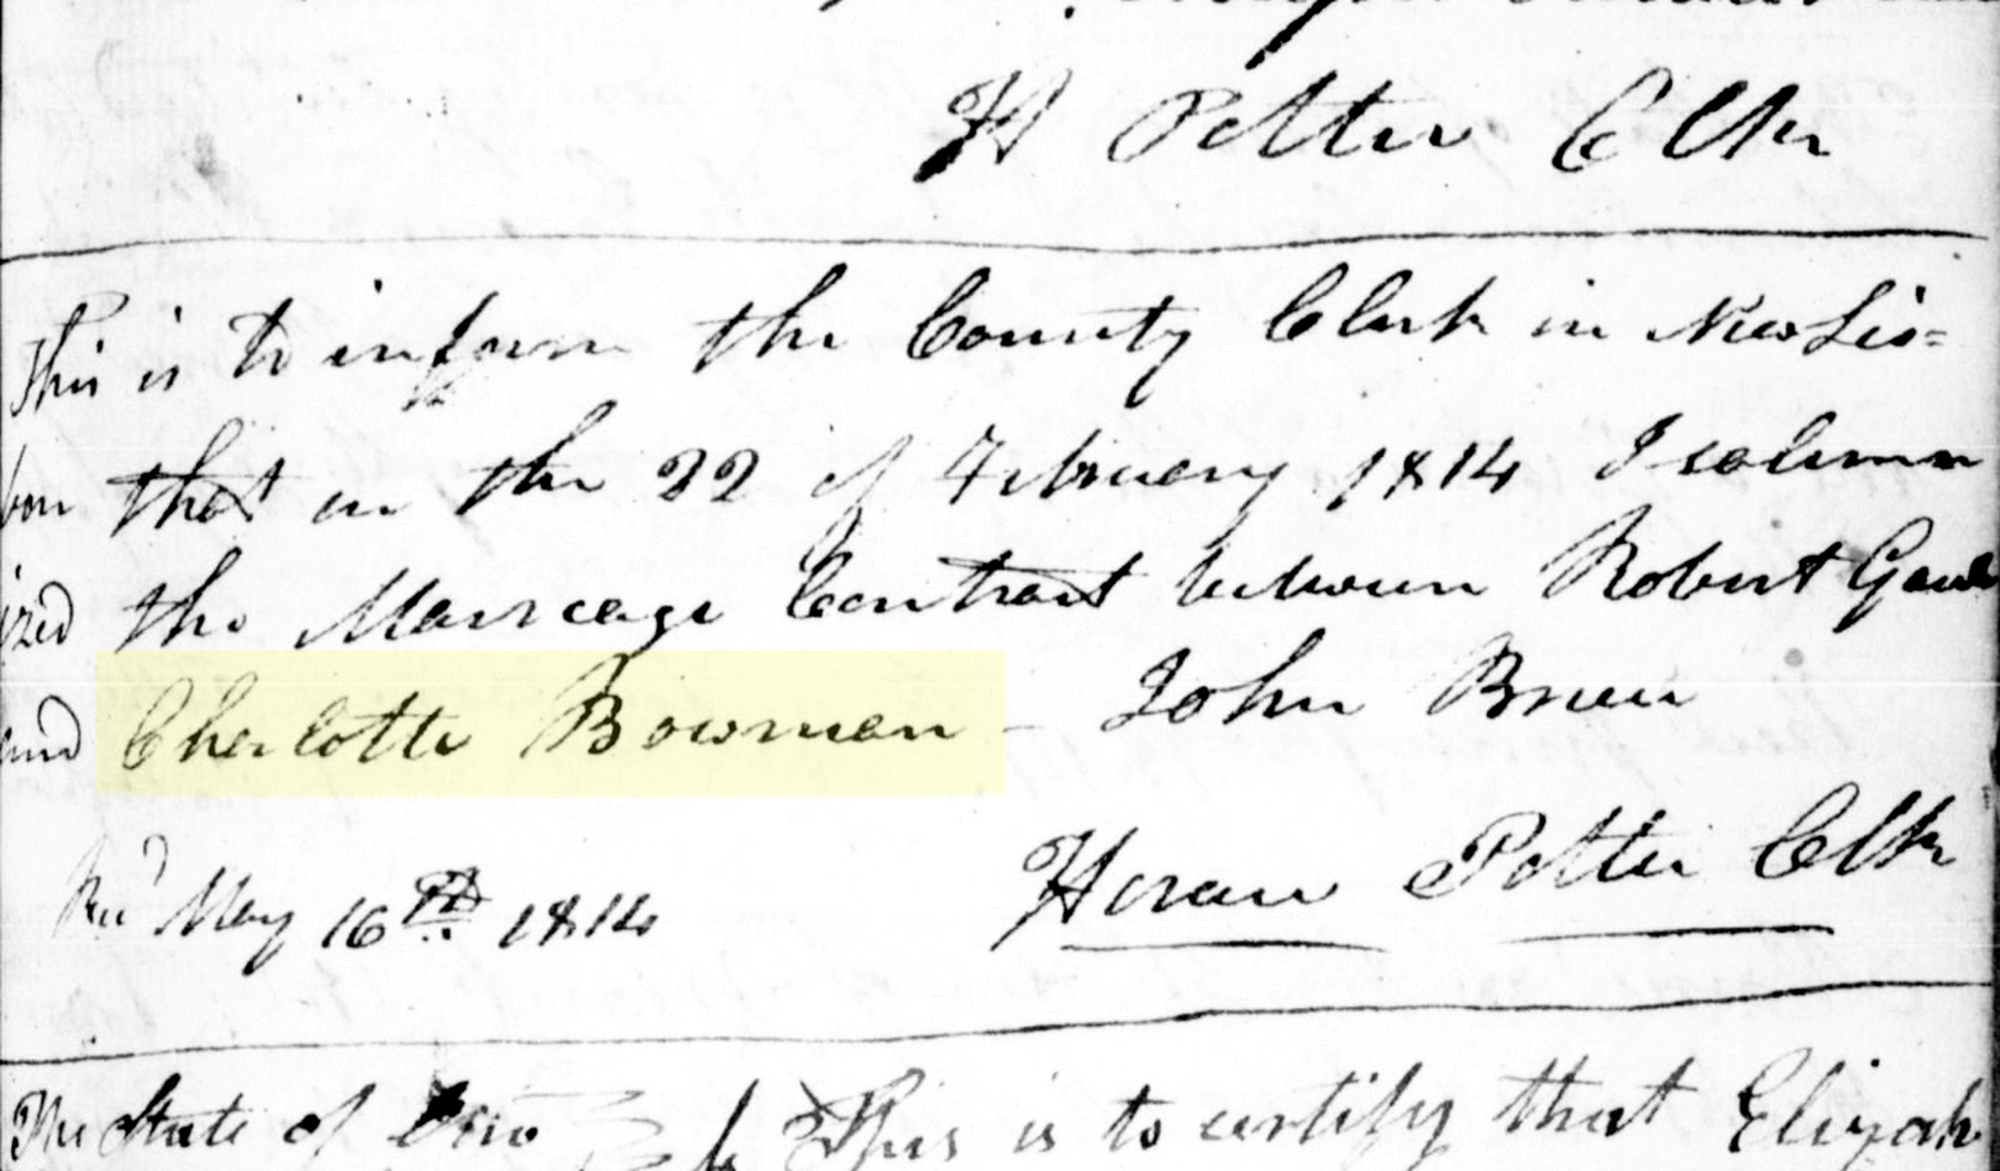 H Potter Clk
This is to inform the County Clerk in New Lis=
bon that on the 22 of February 1814 I solemn
ized the Marreage Contract between Robert
and Charlotte Bowman - John
Recd May 16th 1814 Horace Potter Clk
The State of Ohio This is to certify that Elizah